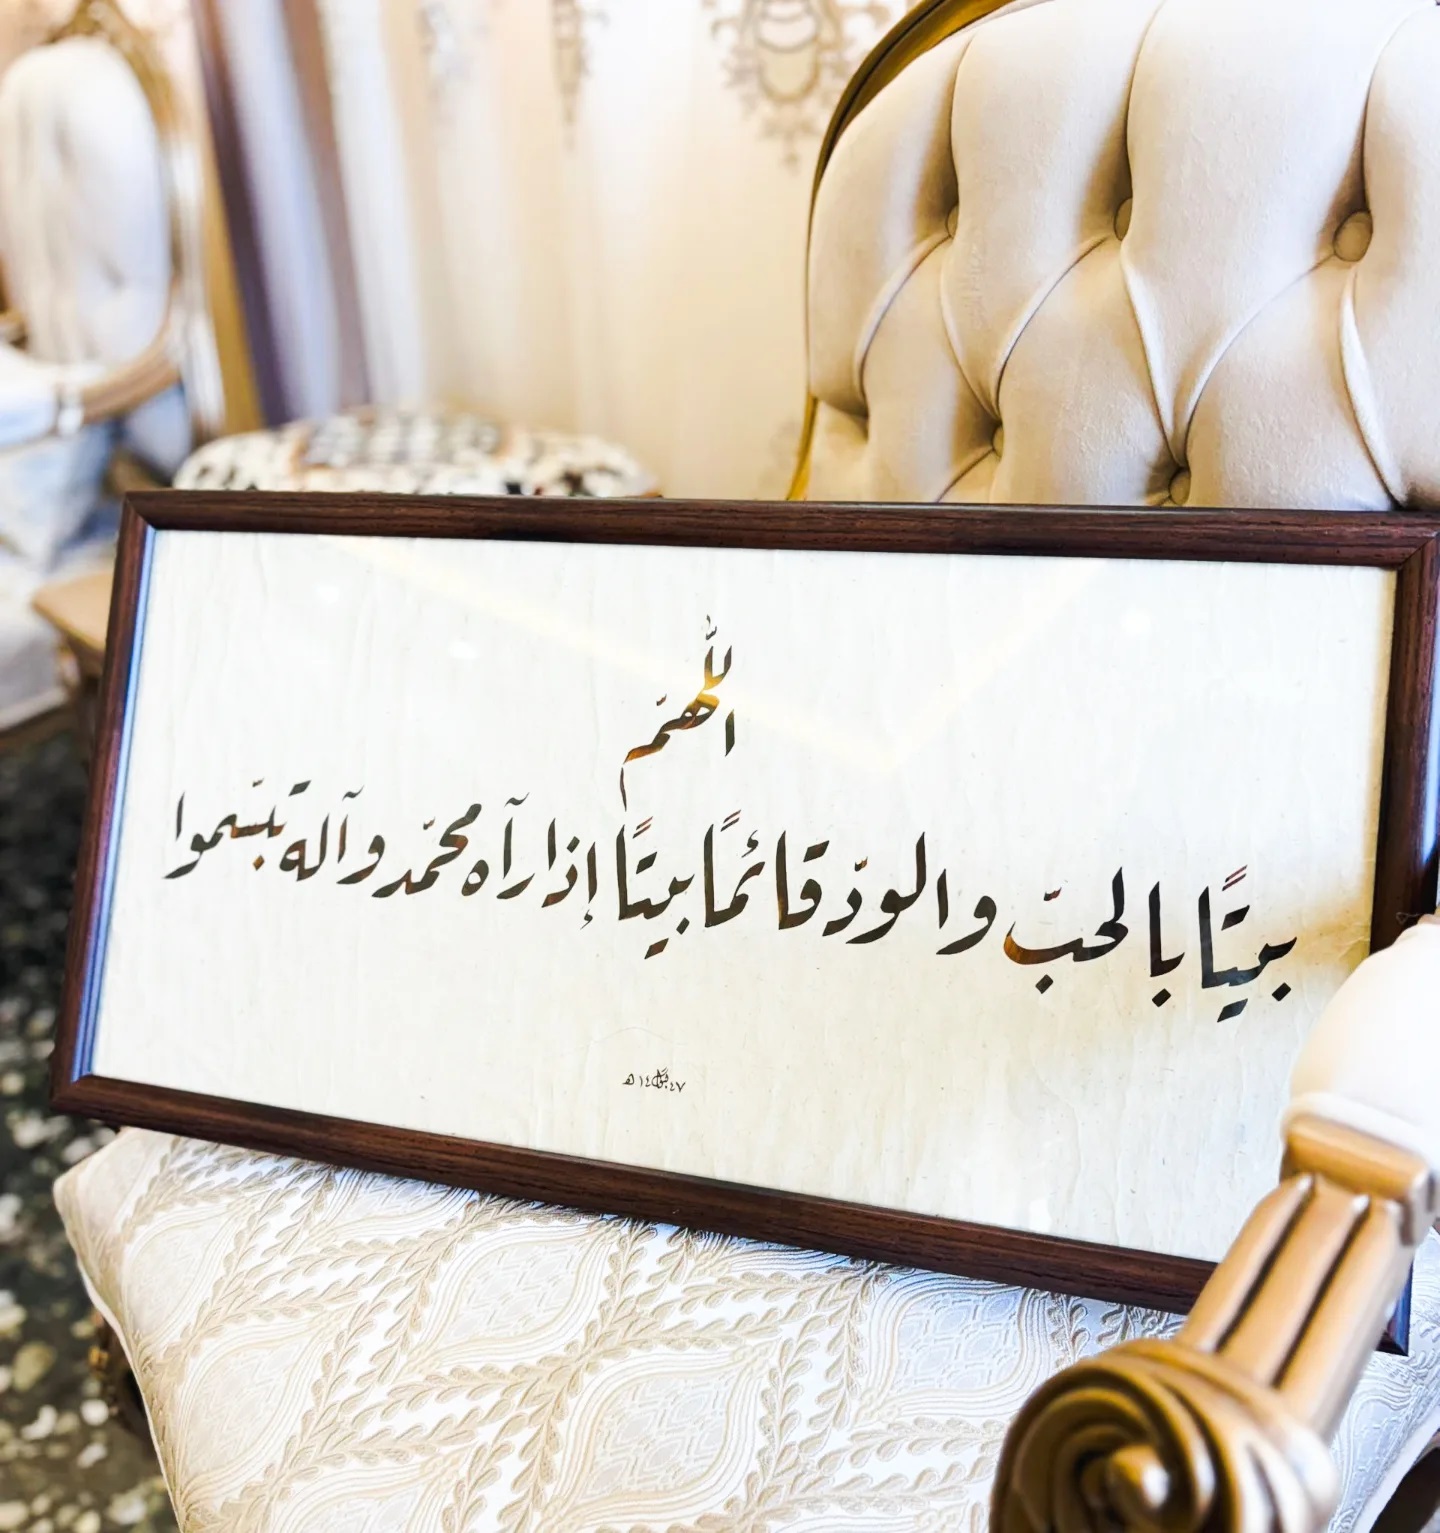 اللّهمّ
بيتًا بالحبّ والودّ قائمًا بيتًا إذا رآه محمّد وآله تبسّموا
١٤٤٧ هـ